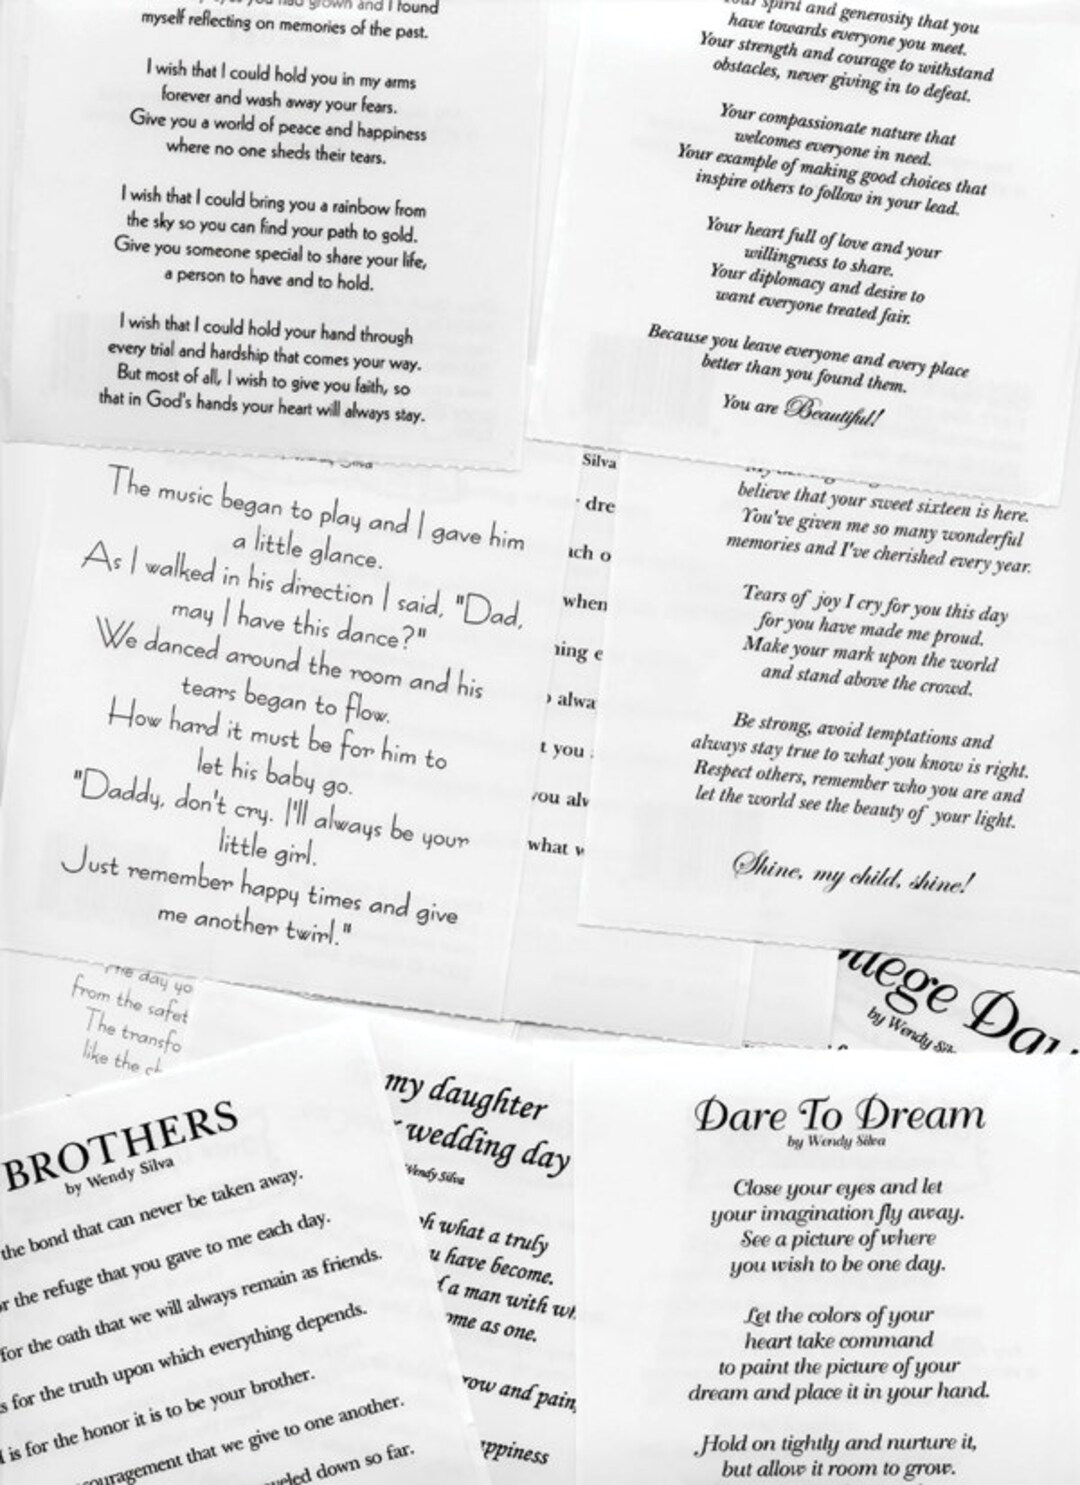 you had grown and I found
myself reflecting on memories of the past.
I wish that I could hold you in my arms
forever and wash away your fears.
Give you a world of peace and happiness
where no one sheds their tears.
I wish that I could bring you a rainbow from
the sky so you can find your path to gold.
Give you someone special to share your life,
a person to have and to hold.
I wish that I could hold your hand through
every trial and hardship that comes your way.
But most of all, I wish to give you faith, so
that in God's hands your heart will always stay.
Your spirit and generosity that you
have towards everyone you meet.
Your strength and courage to withstand
obstacles, never giving in to defeat.
Your compassionate nature that
welcomes everyone in need.
Your example of making good choices that
inspire others to follow in your lead.
Your heart full of love and your
willingness to share.
Your diplomacy and desire to
want everyone treated fair.
Because you leave everyone and every place
better than you found them.
You are Beautiful!
The music began to play and I gave him
a little glance.
As I walked in his direction I said, "Dad,
may I have this dance?"
We danced around the room and his
tears began to flow.
How hard it must be for him to
let his baby go.
"Daddy, don't cry. I'll always be your
little girl.
Just remember happy times and give
me another twirl."
Silva
dre
ach o
when
ning e
alwa
t you
you alw
what w
believe that your sweet sixteen is here.
You've given me so many wonderful
memories and I've cherished every year.
Tears of joy I cry for you this day
for you have made me proud.
Make your mark upon the world
and stand above the crowd.
Be strong, avoid temptations and
always stay true to what you know is right.
Respect others, remember who you are and
let the world see the beauty of your light.
Shine, my child, shine!
The day yo
from the safet
The transfo
like the
llege Day
by Wendy Silv
BROTHERS
by Wendy Silva
the bond that can never be taken away.
r the refuge that you gave to me each day.
for the oath that we will always remain as friends.
s for the truth upon which everything depends.
is for the honor it is to be your brother.
ouragement that we give to one another.
veled down so far.
my daughter
wedding day
Wendy Silva
h what a truly
u have become.
f a man with wh
ome as one.
row and pain,
ppiness
Dare To Dream
by Wendy Silva
Close your eyes and let
your imagination fly away.
See a picture of where
you wish to be one day.
Let the colors of your
heart take command
to paint the picture of your
dream and place it in your hand.
Hold on tightly and nurture it,
but allow it room to grow.